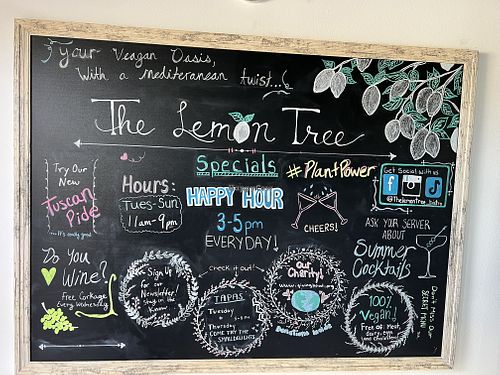 Your Veagan Oasis,
With a mediteranean twist...
The Lemon Tree
Specials
#PlantPower
Get Social with us
@Thelemontree_bistro
Try Our
New
Tuscan
Pide
...It's really good
Hours:
Tues-Sun
11am-9pm
HAPPY HOUR
3-5pm
EVERYDAY!
CHEERS!
ASK YOUR SERVER
ABOUT
Summer
Cocktails
Do you
Wine?
Free Corkage
Every Wednesday
Sign Up
For our
Newsletter!
Keep in the
Know!
Check it out!
TAPAS
Tuesday
Thursday
COME TRY THE
SMALL DELIGHTS
Our
Charity!
Donations
100%
Vegan!
Free of Meat,
dairy, eggs
Don't Miss Our